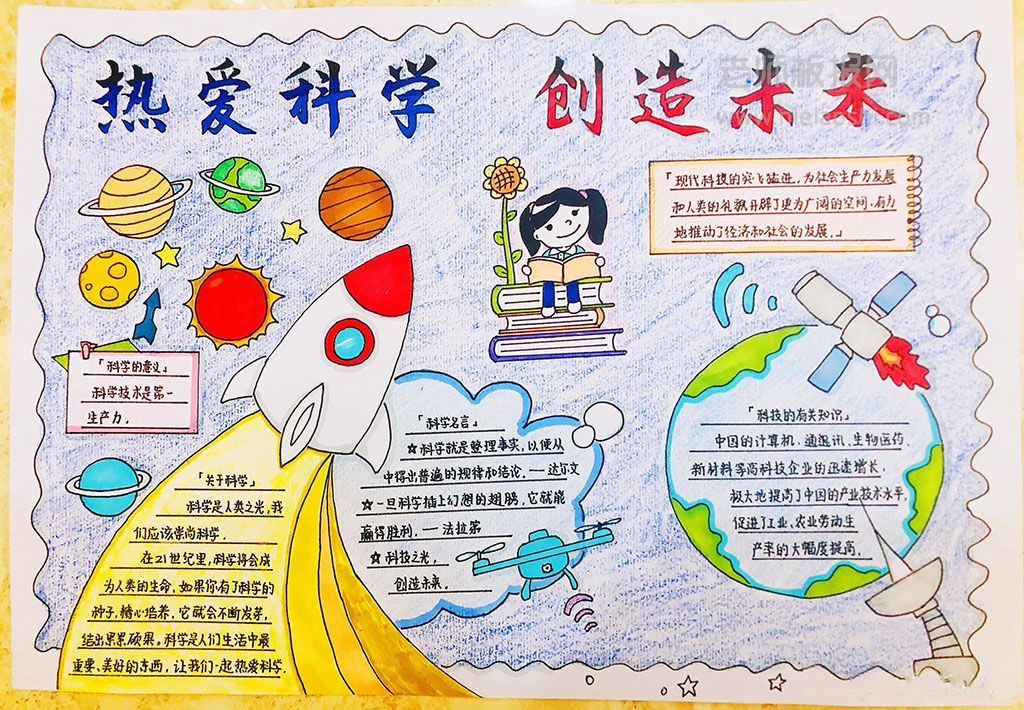 热爱科学 创造未来
「现代科技的突飞猛进，为社会生产力发展
和人类的礼貌开辟了更为广阔的空间，有力
地推动了经济和社会的发展。」
「科学的意义」
科学技术是第一
生产力。
「科学名言」
☆科学就是整理事实，以便从
中得出普遍的规律和结论。——达尔文
☆一旦科学插上幻想的翅膀，它就能
赢得胜利。——法拉第
☆科技之光，
创造未来。
「科技的有关知识」
中国的计算机、通迅讯、生物医药、
新材料等高科技企业的迅速增长，
极大地提高了中国的产业技术水平，
促进了工业、农业劳动生
产率的大幅度提高。
「关于科学」
科学是人类之光，我
们应该崇尚科学。
在21世纪里，科学将会成
为人类的生命，如果你有了科学的
种子，精心培养，它就会不断发芽，
结出累累硕果。科学是人们生活中最
重要、美好的东西，让我们一起热爱科学。